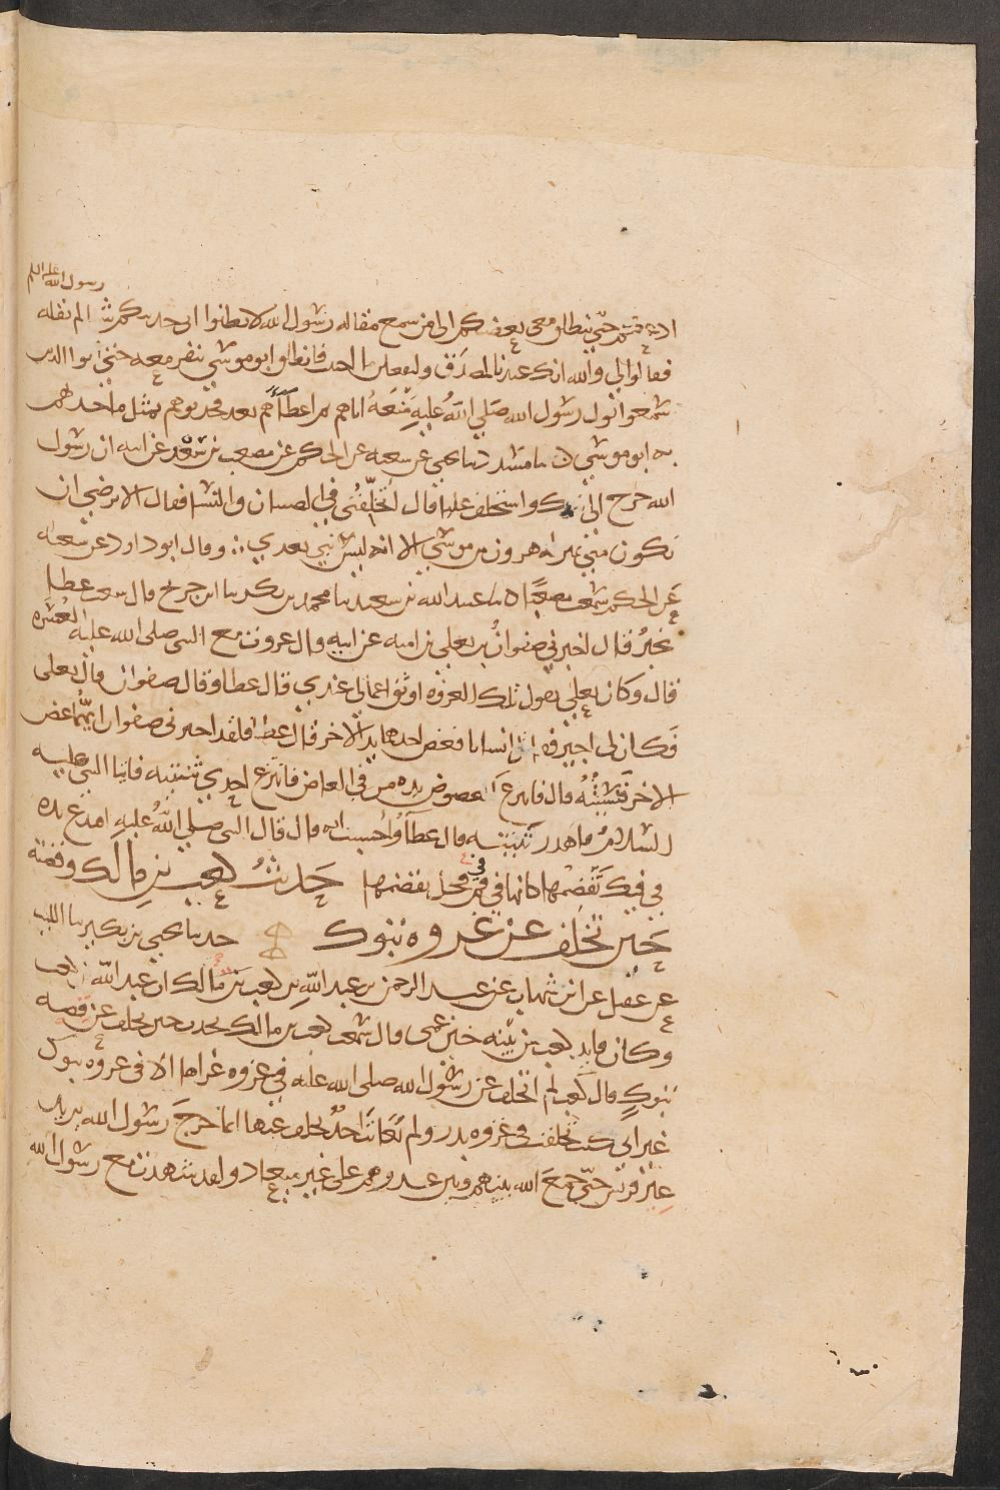 رسول الله عليه السلم
ادعكم حتى ينطلق معي بعضكم الى من سمع مقاله رسول الله لا تظنوا اني حدثتكم شيا لم يقله
فقالوا لي والله انك عندنا لمصدق ولنفعلن ما احببت فانطلق ابو موسي بنفر معه حتى اتوا الذين
سمعوا قول رسول الله صلي الله عليه منعه اياهم ثم اعطاهم بعد فحدثوهم بمثل ما حدثهم
به ابو موسي نا مسدد نا يحيى عن شعبه عن الحكم عن مصعب بن سعد عن ابيه ان رسول
الله خرج الى تبوك واستخلف عليا قال اتخلفني في الصبيان والنسا فقال الا ترضي ان
تكون مني بمنزله هرون من موسي الا انه ليس نبي بعدي وقال ابو داود عن شعبه
عن الحكم سمعت مصعبا نا عبيد الله بن سعيد نا محمد بن بكر نا ابن جريج قال سمعت عطا
يخبر قال اخبرني صفوان بن يعلى بن اميه عن ابيه قال غزوت مع النبي صلى الله عليه العسره
قال وكان يعلى يقول تلك الغزوه اوثق اعمالى عندي قال عطا وقال صفوان قال يعلى
فكان لى اجير فقاتل انسانا فعض احدهما يد الاخر قال عطا فلقد اخبرنى صفوان ايهما عض
الاخر فنسيته قال فانتزع المعضوض يده من في العاض فانتزع احدي ثنيتيه فاتيا النبي عليه
السلام فاهدر ثنيته قال عطا وحسبت انه قال قال النبي صلي الله عليه افيدع يده
في فيك تقضمها كانها في في فحل يقضمها حديث كعب بن مالك وقصته
حين تخلف عن غزوه تبوك حدثنا يحيى بن بكير نا الليث
عن عقيل عن ابن شهاب عن عبد الرحمن بن عبد الله بن كعب بن مالك ان عبد الله بن كعب
وكان قايد كعب من بنيه حين عمى قال سمعت كعب بن مالك يحدث حين تخلف عن قصه
تبوك قال كعب لم اتخلف عن رسول الله صلى الله عليه في غزوه غزاها الا فى غزوه تبوك
غير انى كنت تخلفت فى غزوه بدر ولم يعاتب احد تخلف عنها انما خرج رسول الله يريد
عير قريش حتى جمع الله بينهم وبين عدوهم على غير ميعاد ولقد شهدت مع رسول الله